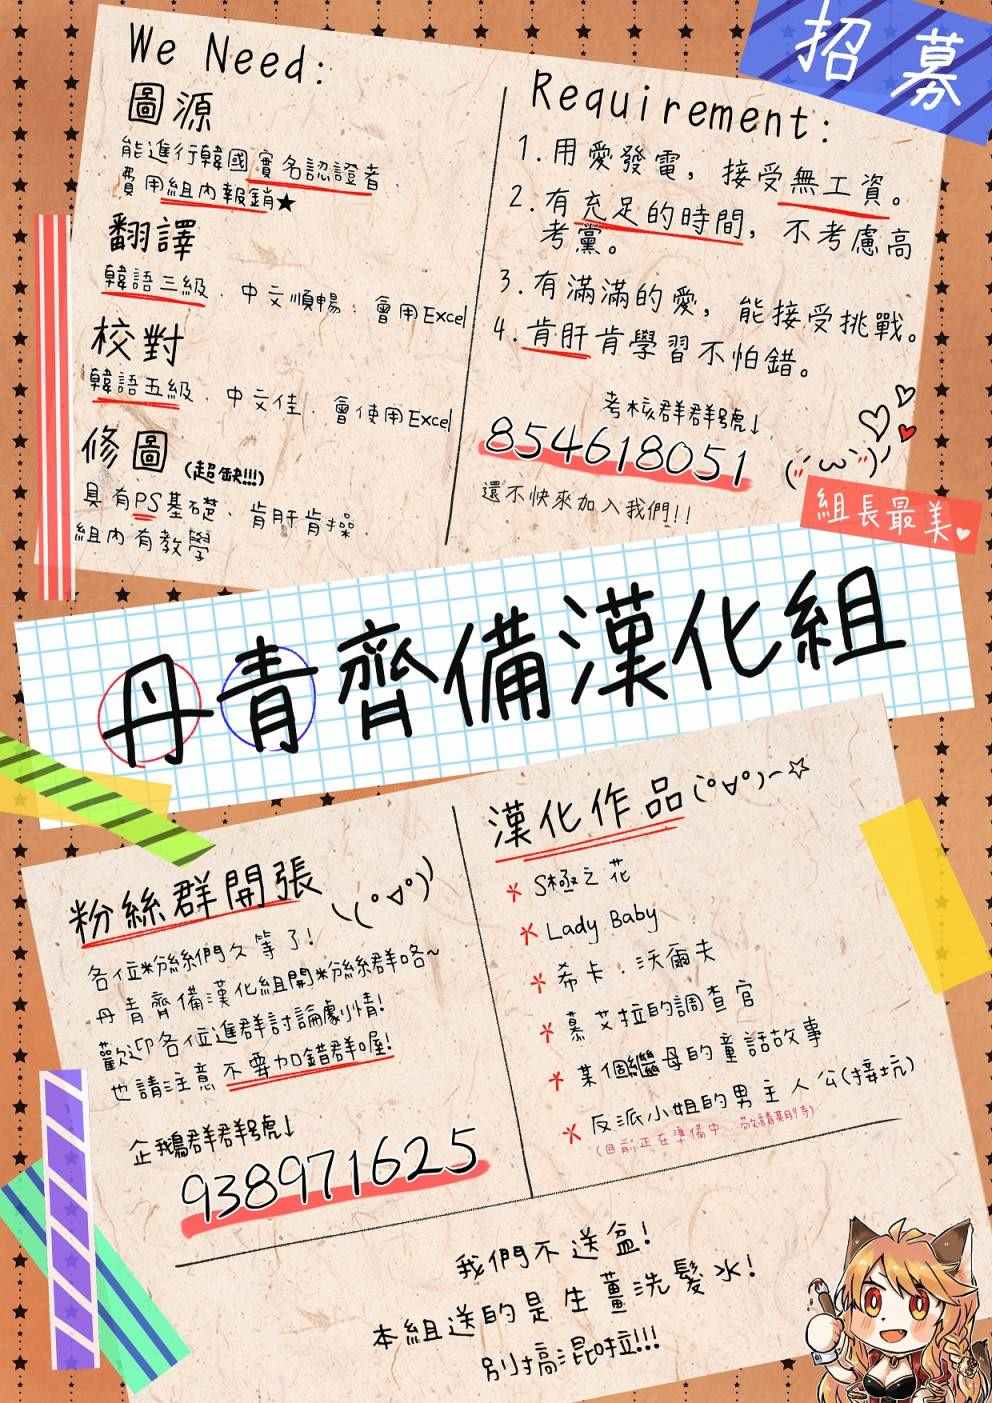 招募
We Need:
圖源
能進行韓國實名認證者.
費用組內報銷★
翻譯
韓語三級、中文順暢、會用Excel
校對
韓語五級、中文佳、會使用Excel
修圖(超缺!!!)
具有PS基礎、肯肝肯操.
組內有教學
Requirement:
1.用愛發電，接受無工資。
2.有充足的時間，不考慮高
考黨。
3.有滿滿的愛，能接受挑戰。
4.肯肝肯學習不怕錯。
考核群群號↓
854618051
還不快來加入我們!!
組長最美♥
丹青齊備漢化組
粉絲群開張
各位粉絲們久等了!
丹青齊備漢化組開粉絲群咯~
歡迎各位進群討論劇情!
也請注意不要加錯群喔!
企鵝群群號↓
938971625
漢化作品(°∀°)~☆
S極之花
Lady Baby
希卡．沃爾夫
慕艾拉的調查官
某個繼母的童話故事
反派小姐的男主人公(接坑)
(目前正在準備中 敬請期待)
我們不送盆!
本組送的是生薑洗髮水!
別搞混啦!!!